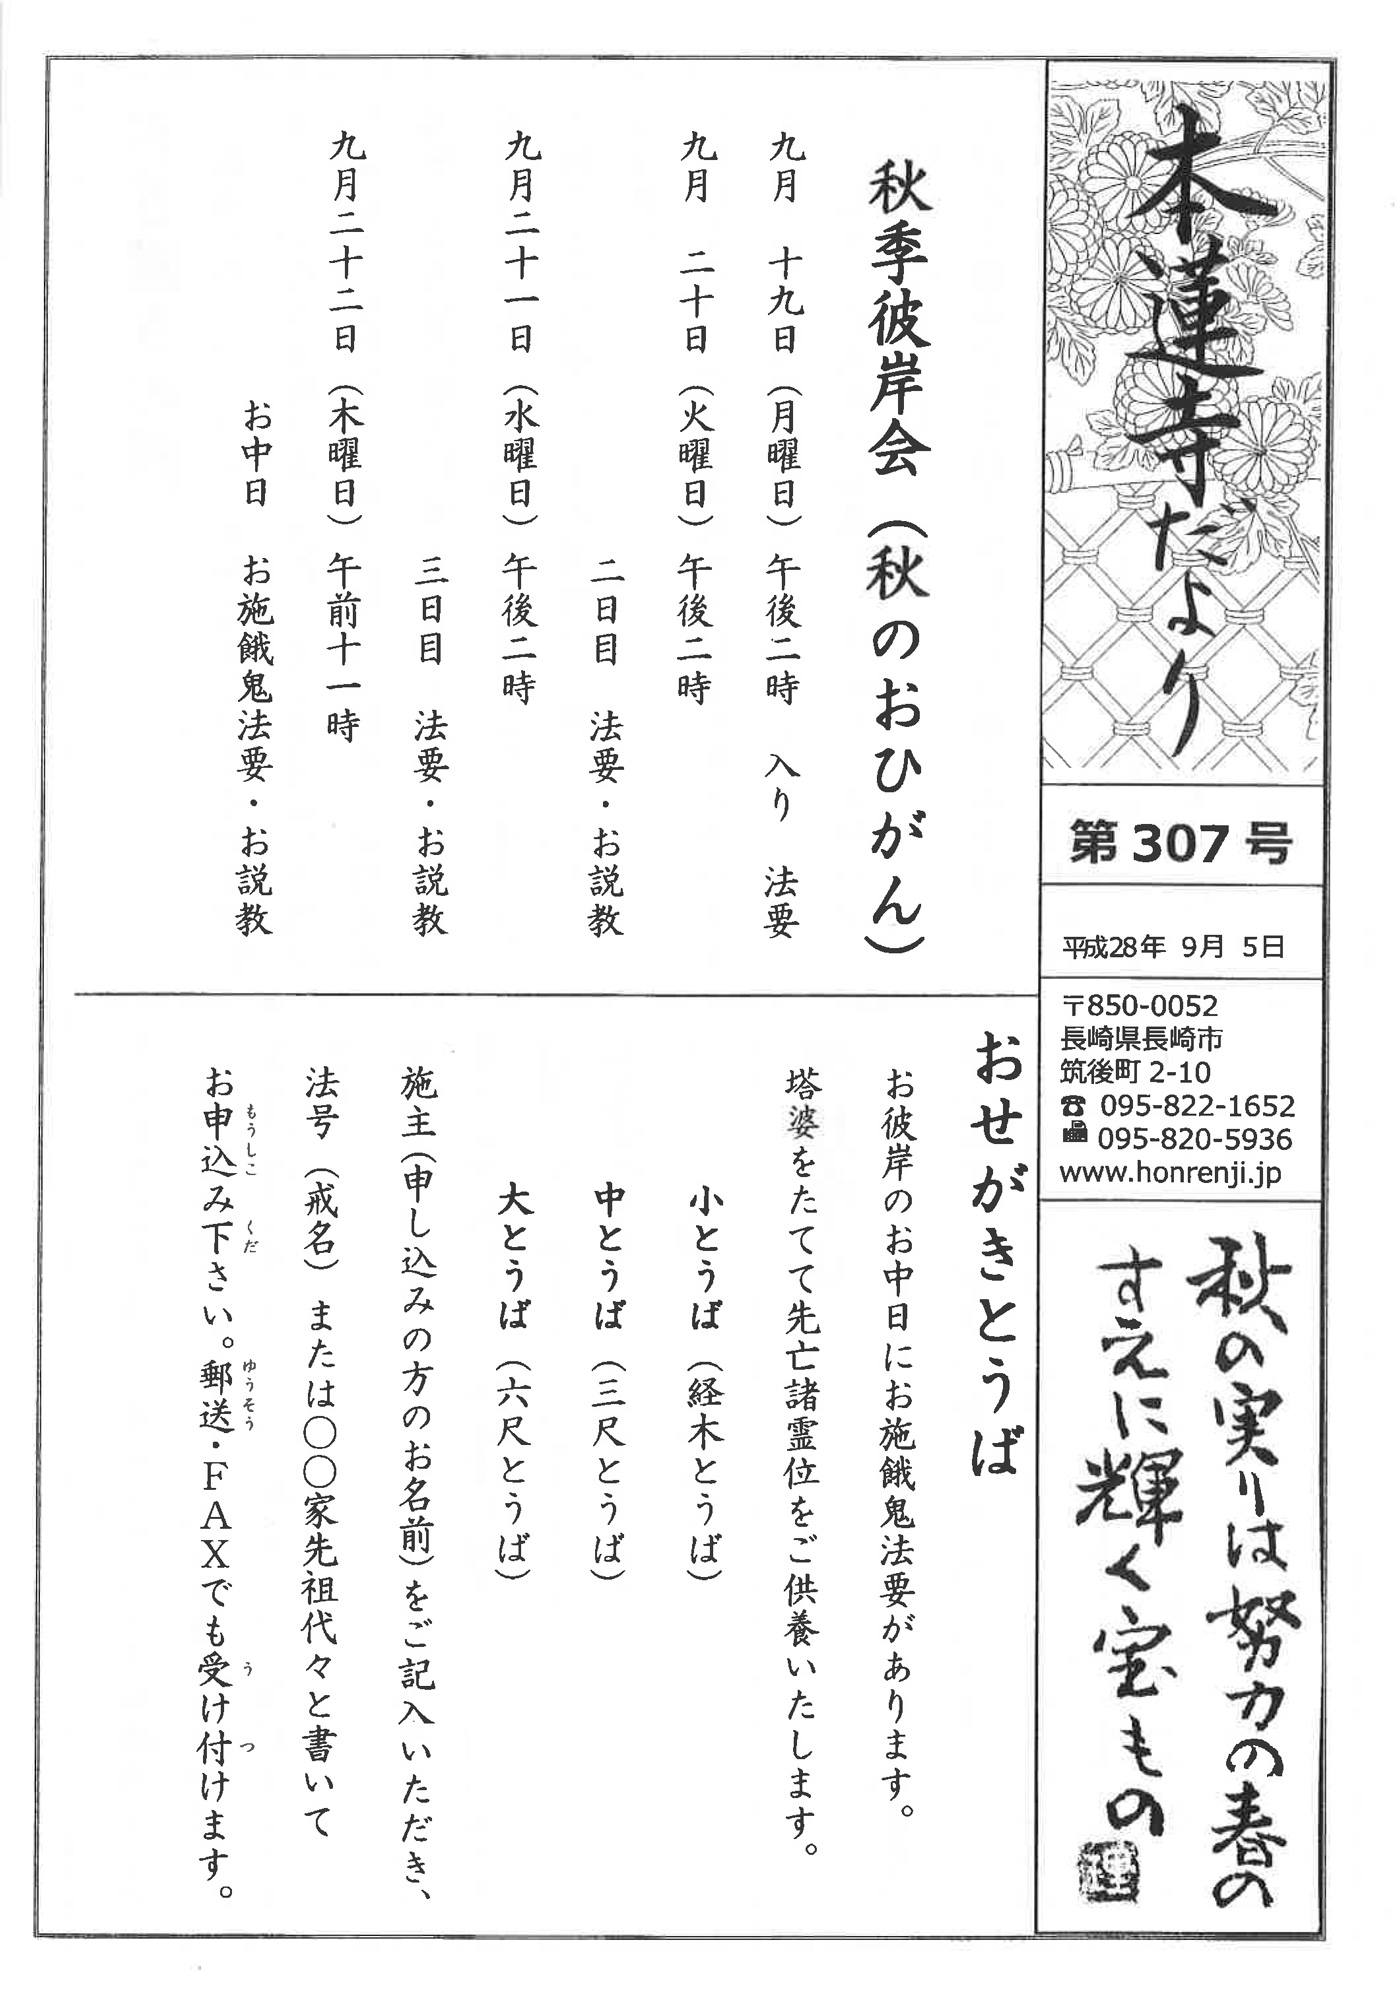 本蓮寺だより
第307号
平成28年 9月 5日
〒850-0052
長崎県長崎市
筑後町2-10
☎ 095-822-1652
095-820-5936
www.honrenji.jp
秋の実りは努力の春の
すえに輝く宝もの
理
秋季彼岸会（秋のおひがん）
九月 十九日（月曜日）午後二時 入り 法要
九月 二十日（火曜日）午後二時
二日目 法要・お説教
九月二十一日（水曜日）午後二時
三日目 法要・お説教
九月二十二日（木曜日）午前十一時
お中日 お施餓鬼法要・お説教
おせがきとうば
お彼岸のお中日にお施餓鬼法要があります。
塔婆をたてて先亡諸霊位をご供養いたします。
小とうば（経木とうば）
中とうば（三尺とうば）
大とうば（六尺とうば）
施主（申し込みの方のお名前）をご記入いただき、
法号（戒名）または〇〇家先祖代々と書いて
もうしこ くだ ゆうそう う つ
お申込み下さい。郵送・FAXでも受け付けます。